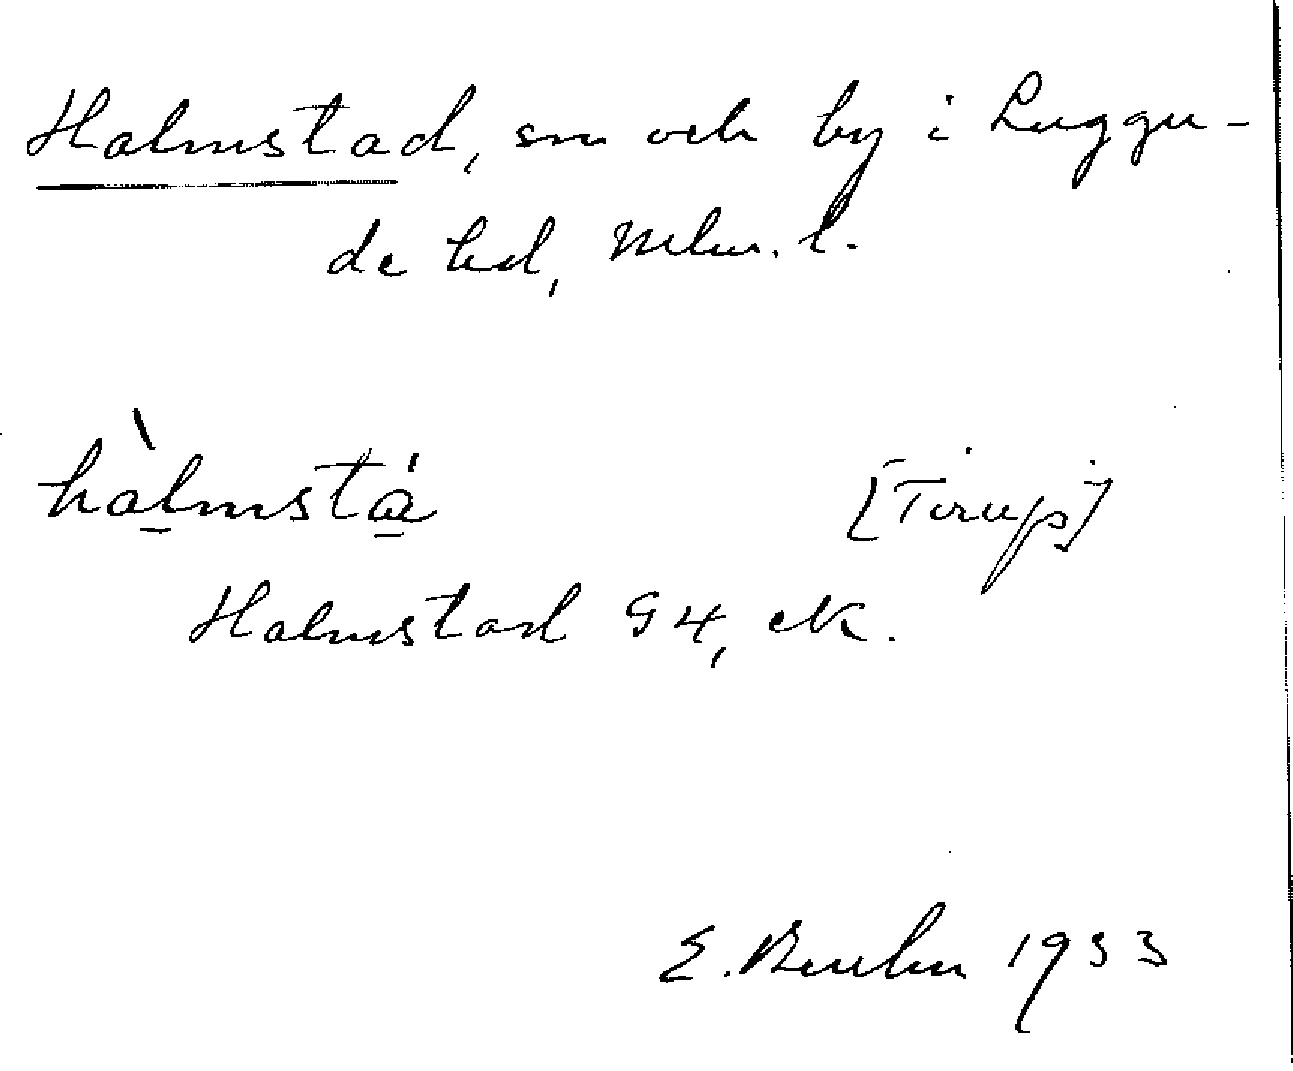 Halmstad, sn och by i Luggu-
de hd, Mlm. l.
hàlmstà [Tirup]
Halmstad G4, ek.
E. 1933